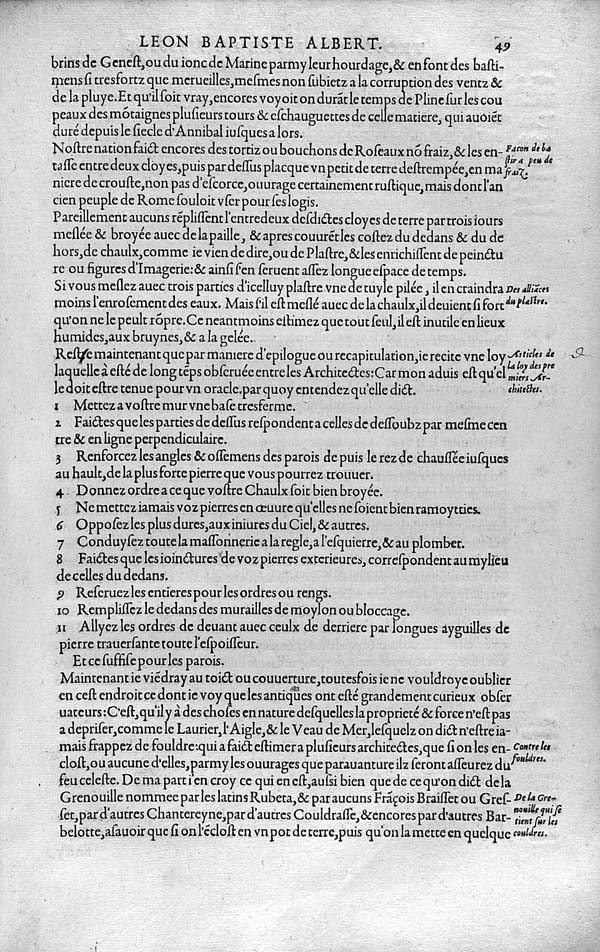 LEON BAPTISTE ALBERT. 49
brins de Genest, ou du ionc de Marine parmy leur hourdage, & en font des basti-
mens si tresfortz que merueilles, mesmes non subietz a la corruption des ventz &
de la pluye. Et qu'il soit vray, encores voyoit on durāt le temps de Pline sur les cou
peaux des mōtaignes plusieurs tours & eschauguettes de celle matiere, qui auoiēt
duré depuis le siecle d'Annibal iusques a lors.
Nostre nation faict encores des tortiz ou bouchons de Roseaux nō fraiz, & les en-
tasse entre deux cloyes, puis par dessus placque vn petit de terre destrempée, en ma
niere de crouste, non pas d'escorce, ouurage certainement rustique, mais dont l'an
cien peuple de Rome souloit vser pour ses logis.
Facon de ba
stir a peu de
fraiz.
Pareillement aucuns rēplissent l'entredeux desdictes cloyes de terre par trois iours
meslée & broyée auec de la paille, & apres couurēt les costez du dedans & du de
hors, de chaulx, comme ie vien de dire, ou de Plastre, & les enrichissent de peinctu
re ou figures d'Imagerie: & ainsi s'en seruent assez longue espace de temps.
Si vous meslez auec trois parties d'icelluy plastre vne de tuyle pilée, il en craindra
moins l'enrosement des eaux. Mais s'il est meslé auec de la chaulx, il deuient si fort
qu'on ne le peult rōpre. Ce neantmoins estimez que tout seul, il est inutile en lieux
humides, aux bruynes, & a la gelée.
Des alliāces
du plastre.
Reste maintenant que par maniere d'epilogue ou recapitulation, ie recite vne loy
laquelle à esté de long tēps obseruée entre les Architectes: Car mon aduis est qu'el
le doit estre tenue pour vn oracle. par quoy entendez qu'elle dict.
Articles de
la loy des pre
miers Ar-
chitectes.
1 Mettez a vostre mur vne base tresferme.
2 Faictes que les parties de dessus respondent a celles de dessoubz par mesme cen
tre & en ligne perpendiculaire.
3 Renforcez les angles & ossemens des parois de puis le rez de chaussée iusques
au hault, de la plus forte pierre que vous pourrez trouuer.
4 Donnez ordre a ce que vostre Chaulx soit bien broyée.
5 Ne mettez iamais voz pierres en œuure qu'elles ne soient bien ramoytties.
6 Opposez les plus dures, aux iniures du Ciel, & autres.
7 Conduysez toute la massonnerie a la regle, a l'esquierre, & au plombet.
8 Faictes que les ioinctures de voz pierres exterieures, correspondent au mylieu
de celles du dedans.
9 Reseruez les entieres pour les ordres ou rengs.
10 Remplissez le dedans des murailles de moylon ou bloccage.
11 Allyez les ordres de deuant auec ceulx de derriere par longues ayguilles de
pierre trauersante toute l'espoisseur.
Et ce suffise pour les parois.
Maintenant ie viēdray au toict ou couuerture, toutesfois ie ne vouldroye oublier
en cest endroit ce dont ie voy que les antiques ont esté grandement curieux obser
uateurs: C'est, qu'il y à des choses en nature desquelles la proprieté & force n'est pas
a depriser, comme le Laurier, l'Aigle, & le Veau de Mer, lesquelz on dict n'estre ia-
mais frappez de fouldre: qui a faict estimer a plusieurs architectes, que si on les en-
clost, ou aucune d'elles, parmy les ouurages que parauanture ilz seront asseurez du
feu celeste. De ma part i'en croy ce qui en est, aussi bien que de ce qu'on dict de la
Grenouille nommee par les latins Rubeta, & par aucuns Frāçois Braisset ou Gres-
set, par d'autres Chantereyne, par d'autres Couldrasse, & encores par d'autres Bar-
belotte, asauoir que si on l'éclost en vn pot de terre, puis qu'on la mette en quelque
Contre les
fouldres.
De la Gre-
nouille qui se
tient sur les
couldres.